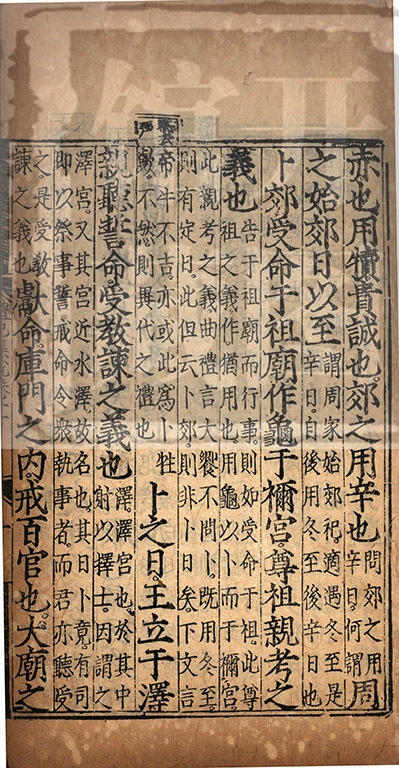 赤也用犢貴誠也郊之用辛也問郊之用辛日何謂周
之始郊日以至謂周家始郊祀適遇冬至是辛日自後用冬至後辛日也
卜郊受命于祖廟作龜于禰宮尊祖親考之
義也告于祖廟而行事則如受命于祖此尊祖之義作猶用也用龜以卜而于禰宮
此親考之義曲禮言大饗不問卜既用冬至則有定日此但云卜郊則非卜日矣下文言
帝牛不吉亦或此爲卜牲歟不然則異代之禮也卜之日王立于澤
親聽誓命受教諫之義也澤澤宮也於其中射以擇士因謂之
澤宮又其宮近水澤故名也其日卜竟有司即以祭事誓戒命令衆執事者而君亦聽受
之是受教諫之義也獻命庫門之内戒百官也大廟之